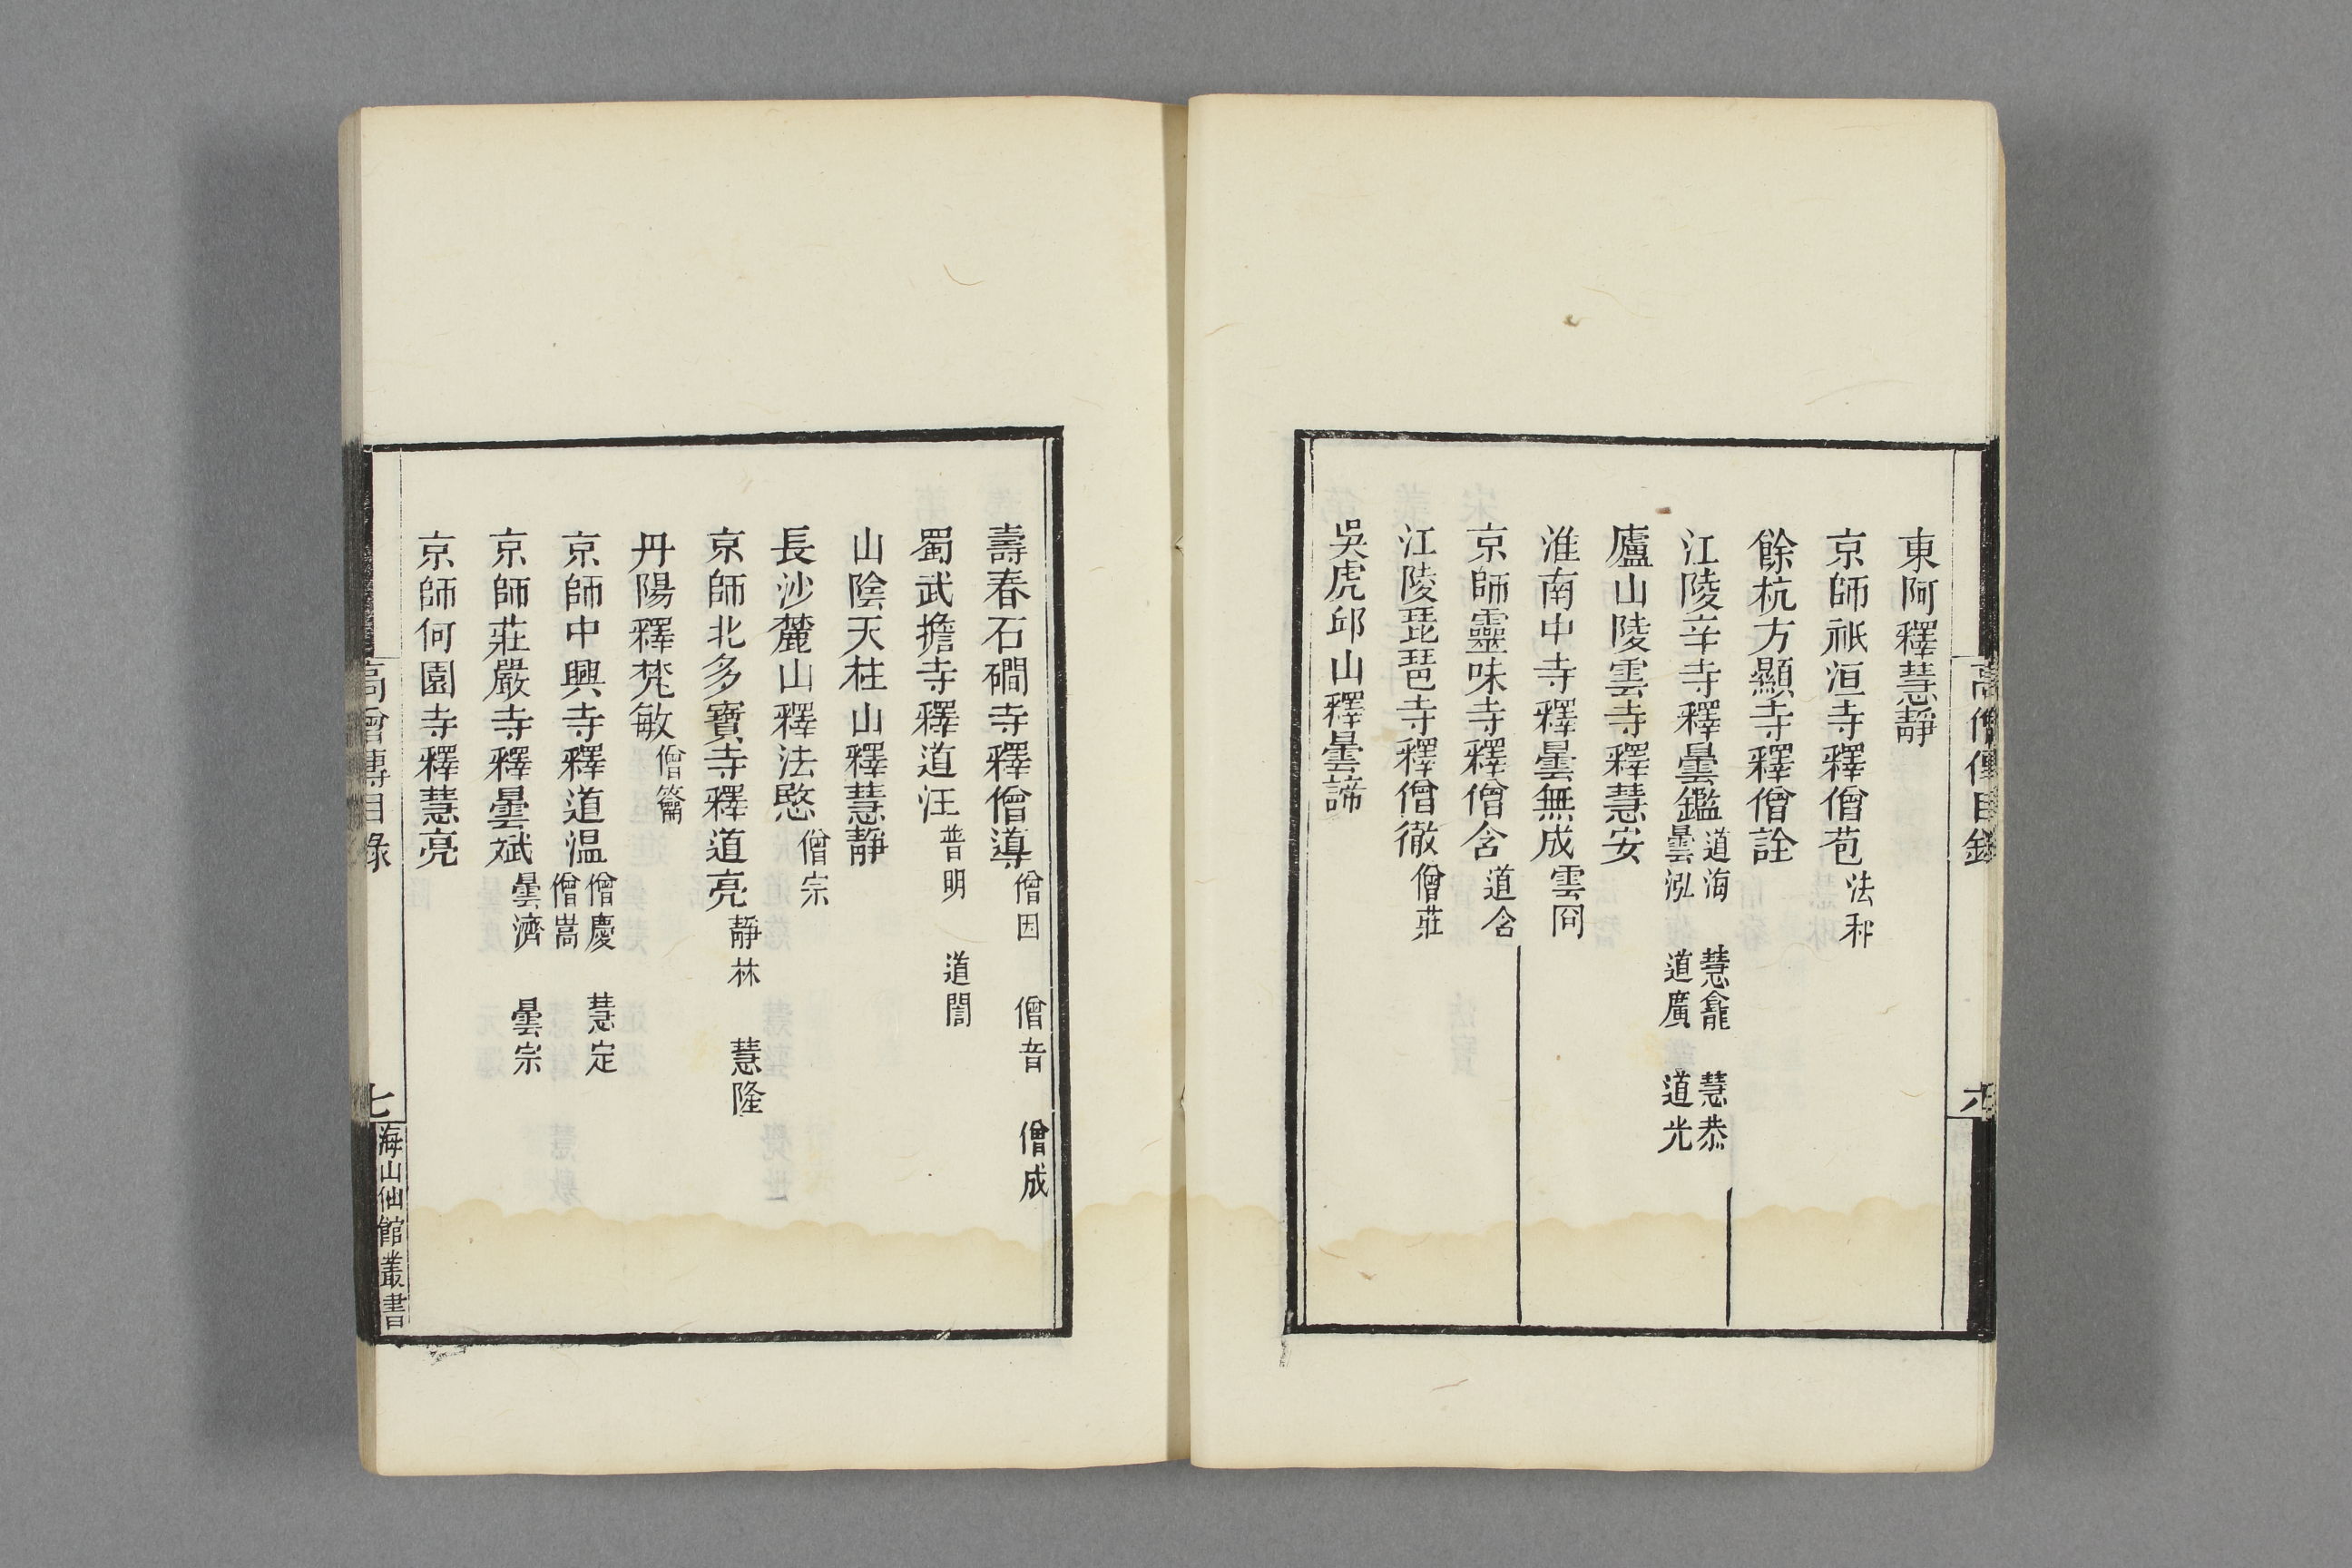 東阿釋慧靜
京師祇洹寺釋僧苞 法和
餘杭方顯寺釋僧詮
江陵辛寺釋曇鑑 道海 慧龕 慧恭 曇泓 道廣 道光
廬山陵雲寺釋慧安
淮南中寺釋曇無成 雲冏
京師靈味寺釋僧含 道含
江陵琵琶寺釋僧徹 僧莊
吳虎邱山釋曇諦
高僧傳目錄
六
壽春石磵寺釋僧導 僧因 僧音 僧成
蜀武擔寺釋道汪 普明 道誾
山陰天柱山釋慧靜
長沙麓山釋法愍 僧宗
京師北多寶寺釋道亮 靜林 慧隆
丹陽釋梵敏 僧籥
京師中興寺釋道温 僧慶 慧定 僧嵩
京師莊嚴寺釋曇斌 曇濟 曇宗
京師何園寺釋慧亮
高僧傳目錄
七
海山仙館叢書